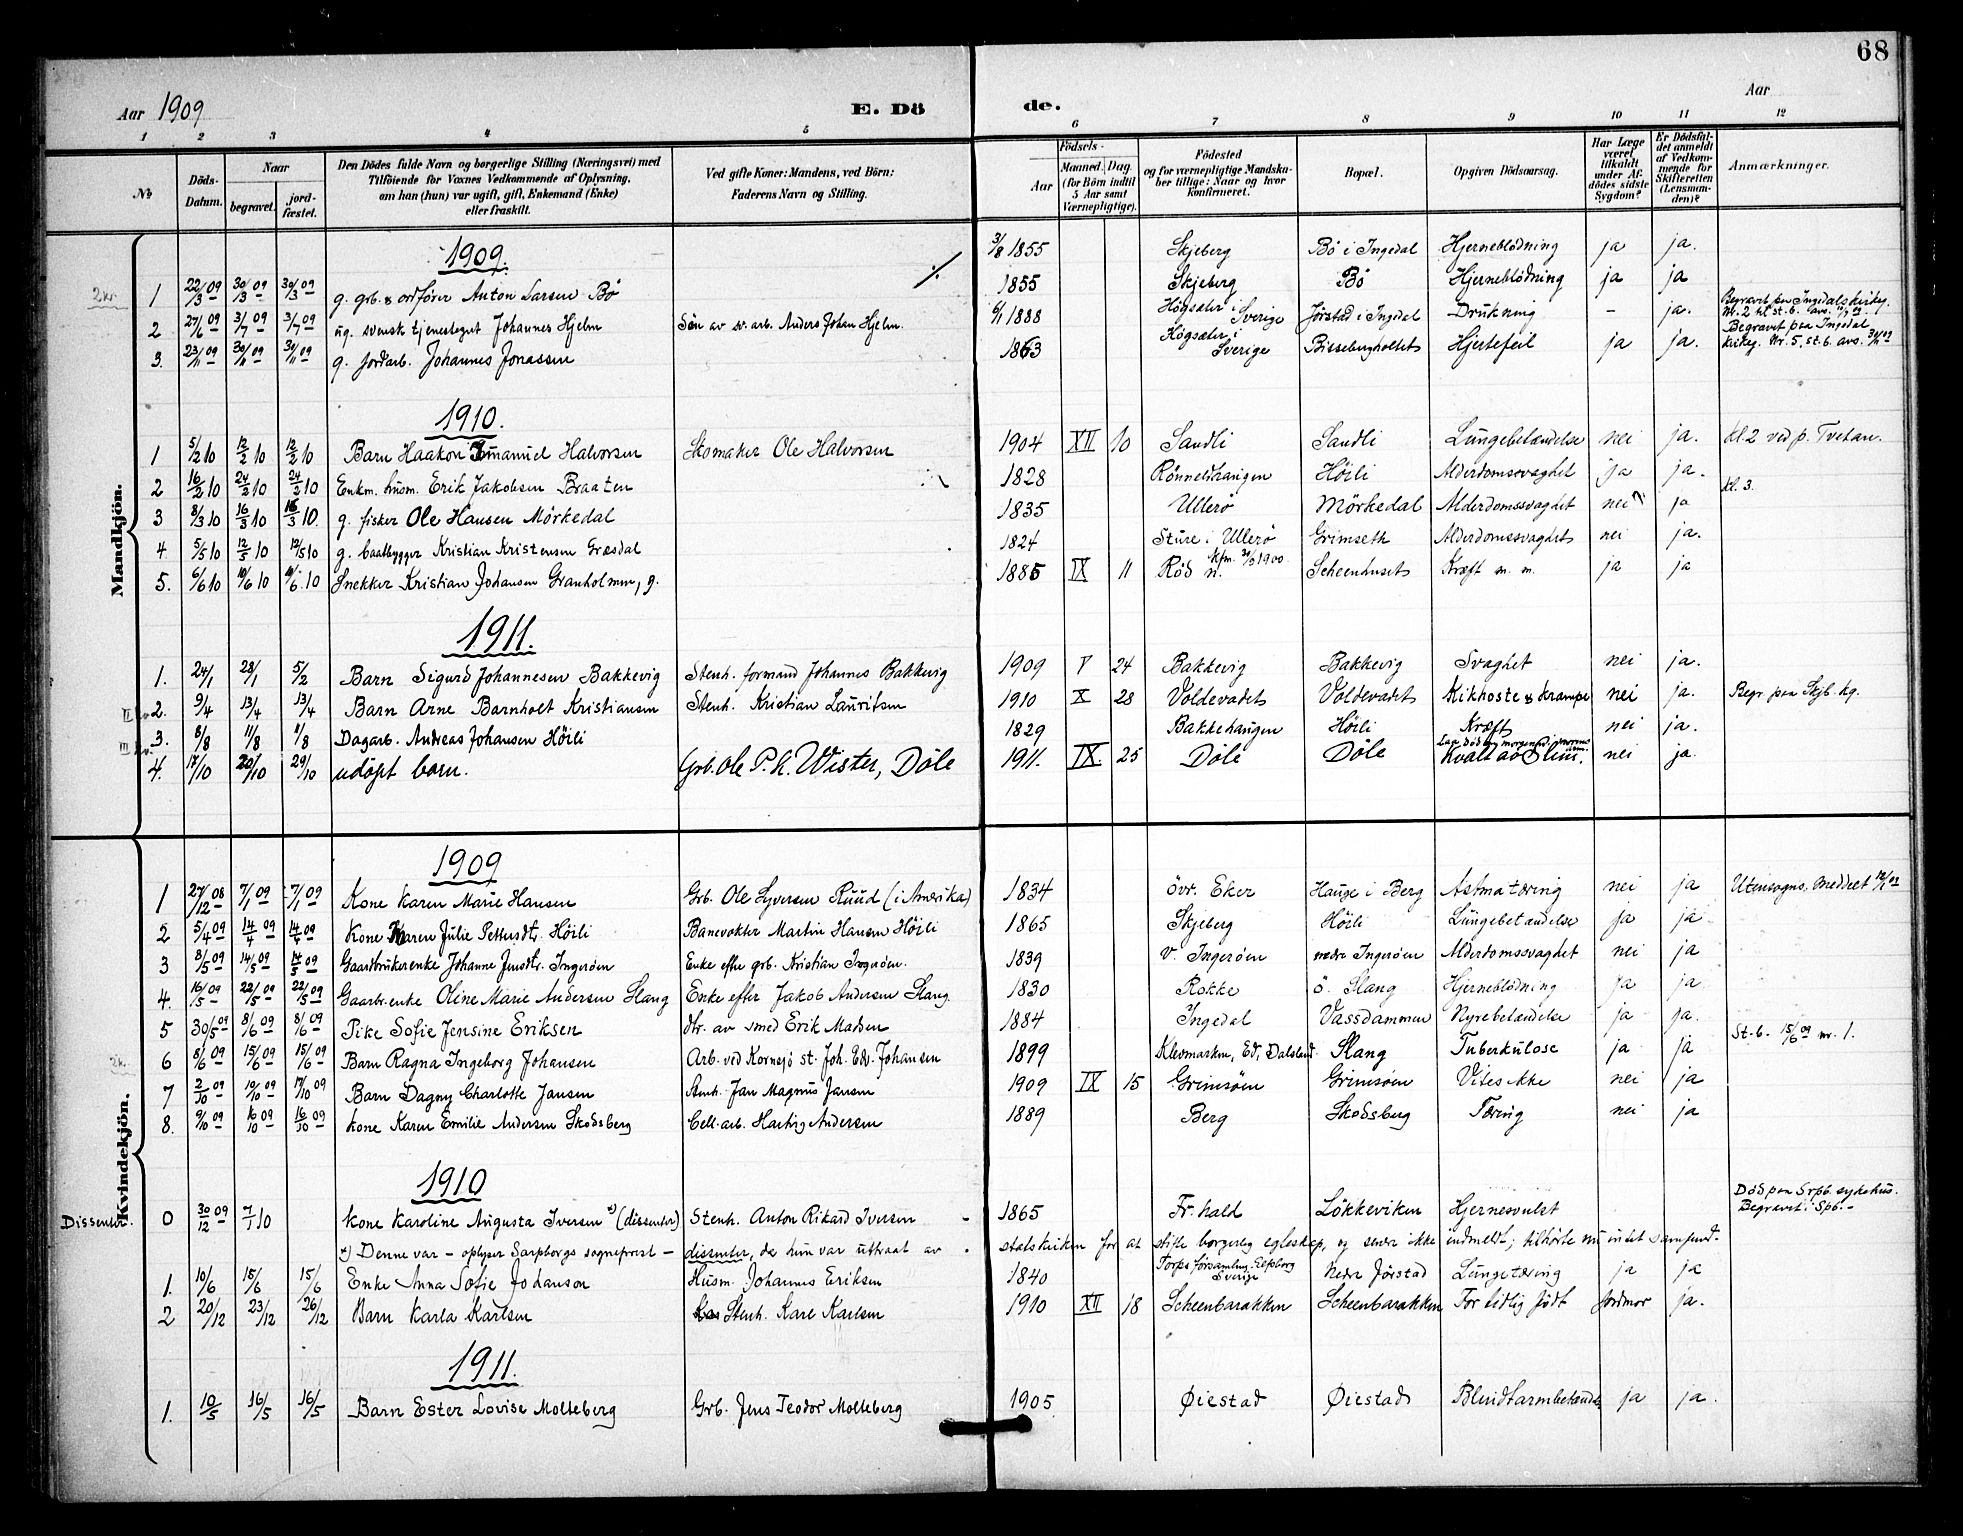 68
Aar 1909
E. Dö de.
Aar
1 2 3 4 5 6 7 8 9 10 11 12
No
Döds-Datum.
Naar
begravet.
jordfæstet.
Den Dödes fulde Navn og borgerlige Stilling (Næringsvei) med
Tilföiende for Voxnes Vedkommende af Oplysning,
om han (hun) var ugift, gift, Enkemand (Enke)
eller fraskilt.
Ved gifte Koner: Mandens, ved Börn:
Faderens Navn og Stilling.
Födsels-
Aar
Maaned. Dag.
(for Börn indtil
5 Aar samt
Værnepligtige).
Födested
og for værnepligtige Mandskaber tillige: Naar og hvor
Konfirmeret.
Bopæl.
Opgiven Dödsaarsag.
Har Læge
været
tilkaldt
under Afdödes sidste
Sygdom?
Er Dödsfaldet anmeldt
af Vedkommende for
Skifteretten
(Lensmanden)?
Anmærkninger.
Mandkjön.
1909.
3/8 1855 Skjeberg Bö i Ingedal Hjerneblödning ja ja.
2kr. 1 22/3 09 30/3 09 30/3 09 g. grb. & ordförer Anton Larsen Bö 1855 Skjeberg Bö Hjerneblödning ja ja
2 27/6 09 3/7 09 3/7 09 ug. svensk tjenestegut Johannes Hjelm Sön av sv. arb. Anders Johan Hjelm. 1888 Högsæter i Sverige Jörstad i Ingedal Drukning – ja. Begravet paa Ingedals kirkeg.
3. 23/11 09 30/11 09 30/11 09 g. jordarb. Johannes Jonassen 1863 Högsæter i Sverige Bissebergholtet Hjertefeil ja ja. Begravet paa Ingedal kirkeg. Nr. 5, st. b. avs.
1910.
1 5/2 10 12/2 10 12/2 10 Barn Haakon Emanuel Halvorsen Skomaker Ole Halvorsen 1904 XII 10 Sandli Sandli Lungebetændelse nei ja. kl. 2 ved p. Tvetan.
2 16/2 10 24/2 10 24/2 10 Enkm. husm. Erik Jakobsen Braaten 1828 Rönneldhaugen Höili Alderdomssvaghet ja ja. kl. 3.
3 8/3 10 16/3 10 16/3 10. g. fisker Ole Hansen Mörkedal 1835 Ullerö Mörkedal Alderdomssvaghet nei? ja
4. 5/5 10 12/5 10 12/5 10 g. baatbygger Kristian Kristensen Græsdal 1824 Sture i Ullerö Grimseth Alderdomssvaghet nei ja.
5. 6/6 10 10/6 10 10/6. 10 Snekker Kristian Johansen Granholmen, g. 1885 IX 11 Röd Scheenhuset Kræft m. m. ja ja
1911.
1. 24/1 28/1 5/2 Barn Sigurd Johannesen Bakkevig Stenh. formand Johannes Bakkevig 1909 V 24 Bakkevig Bakkevig Svaghet nei ja.
2. 9/4 13/4 13/4 Barn Arne Barnholt Kristiansen Stenh. Kristian Lauritsen 1910 X 28 Voldevadet Voldevadet Kikhoste & Krampe nei ja. Begr. paa Skjb. kg.
3. 8/8 11/8 11/8 Dagarb. Andreas Johansen Höili 1829 Bakkehaugen Höili Kræft nei ja.
4. 17/10 20/10 29/10 udöpt barn. Grb. Ole P. A. Wister, Döle 1911. IX. 25 Döle Döle nei ja.
Kvindekjön.
1909
1 27/12 08 7/1 09 7/1 09 Kone Karen Marie Hansen Grb. Ole Syversen Ruud (i Amerika) 1834 övr. Eker Hauge i Berg Astma tæring nei ja Utensogns. Meddelt
2 5/4 09 14/4 09 14/4 09 Kone Karen Julie Pettersdtr. Höili Banevokter Martin Hansen Höili 1865 Skjeberg Höili Lungebetændelse ja ja
3 8/5 09 14/5 09 14/5 09 Gaardbrukerenke Johanne Jensdtr. Ingeröen Enke efter grb. Kristian Ingeröen. 1839 v. Ingeröen nedre Ingeröen Alderdomssvaghet nei ja
4. 16/5 09 22/5 09 22/5 09 Gaardbr.enke Oline Marie Andersen Slang Enke efter Jakob Andersen Slang. 1830 Rokke ö. Slang Hjerneblödning ja ja.
5 30/5 09 8/6 09 8/6 09 Pike Sofie Jensine Eriksen dtr. av smed Erik Madsen 1884 Ingedal Vassdammen Nyrebetændelse ja ja.
6 8/6 09 15/6 09 15/6 09 Barn Ragna Ingeborg Johansen Arb. ved Kornsjö st. Joh. Edv. Johansen 1899 Klevmarken, Ed, Dalsland. Slang Tuberkulose ja ja St. b. 15/6 09 nr. 1.
7 2/10 09 10/10 09 17/10 09 Barn Dagny Charlotte Jansen Stenh. Jan Magnus Jansen 1909 IX 15 Grimsöen Grimsöen Vites ikke nei ja
8. 9/10 09 16/10 09 16/10 09 Kone Karen Emilie Andersen Skodsberg Cell. arb. Hartvig Andersen 1889 Berg Skodsberg Tæring nei ja
1910
Dissenter. 0 30/12 09 7/1 10 Kone Karoline Augusta Iversen *) (dissenter) Stenh. Anton Rikard Iversen 1865 Fr.hald Lökkeviken Hjernesvulst Död paa Srpb. sykehus. Begravet i Spb. –
*) Denne var – oplyser Sarpborgs sogneprest – dissenter, da hun var uttraat av statskirken for at stifte borgerlig egteskap, og senere ikke indmeldt; tilhörte nu intet samfund.
1. 10/6 15/6 15/6 Enke Anna Sofie Johanson Husm. Johannes Eriksen 1840 Torps församling Elfsborg Sverige Nedre Jörstad Lungetæring ja ja
2 20/12 23/12 26/12 Barn Karla Karlsen Stenh. Karl Karlsen 1910 XII 18 Scheenbarakken Scheenbarakken For tidlig födt Jordmor ja.
1911.
1. 10/5 16/5 16/5 Barn Ester Lovise Molteberg Grb. Jens Teodor Molteberg 1905 Øiestad Øiestad Blindtarmbetændelse ja ja.